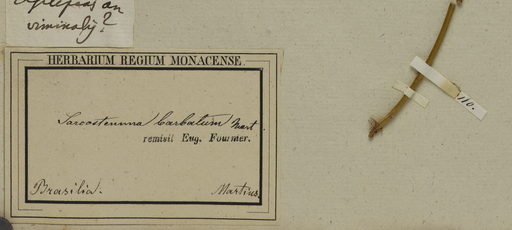 viminalis?
HERBARIUM REGIUM MONACENSE.
Sarcostemma barbatum Mart
remisit Eug. Fournier.
Brasilia. Martius.
110.